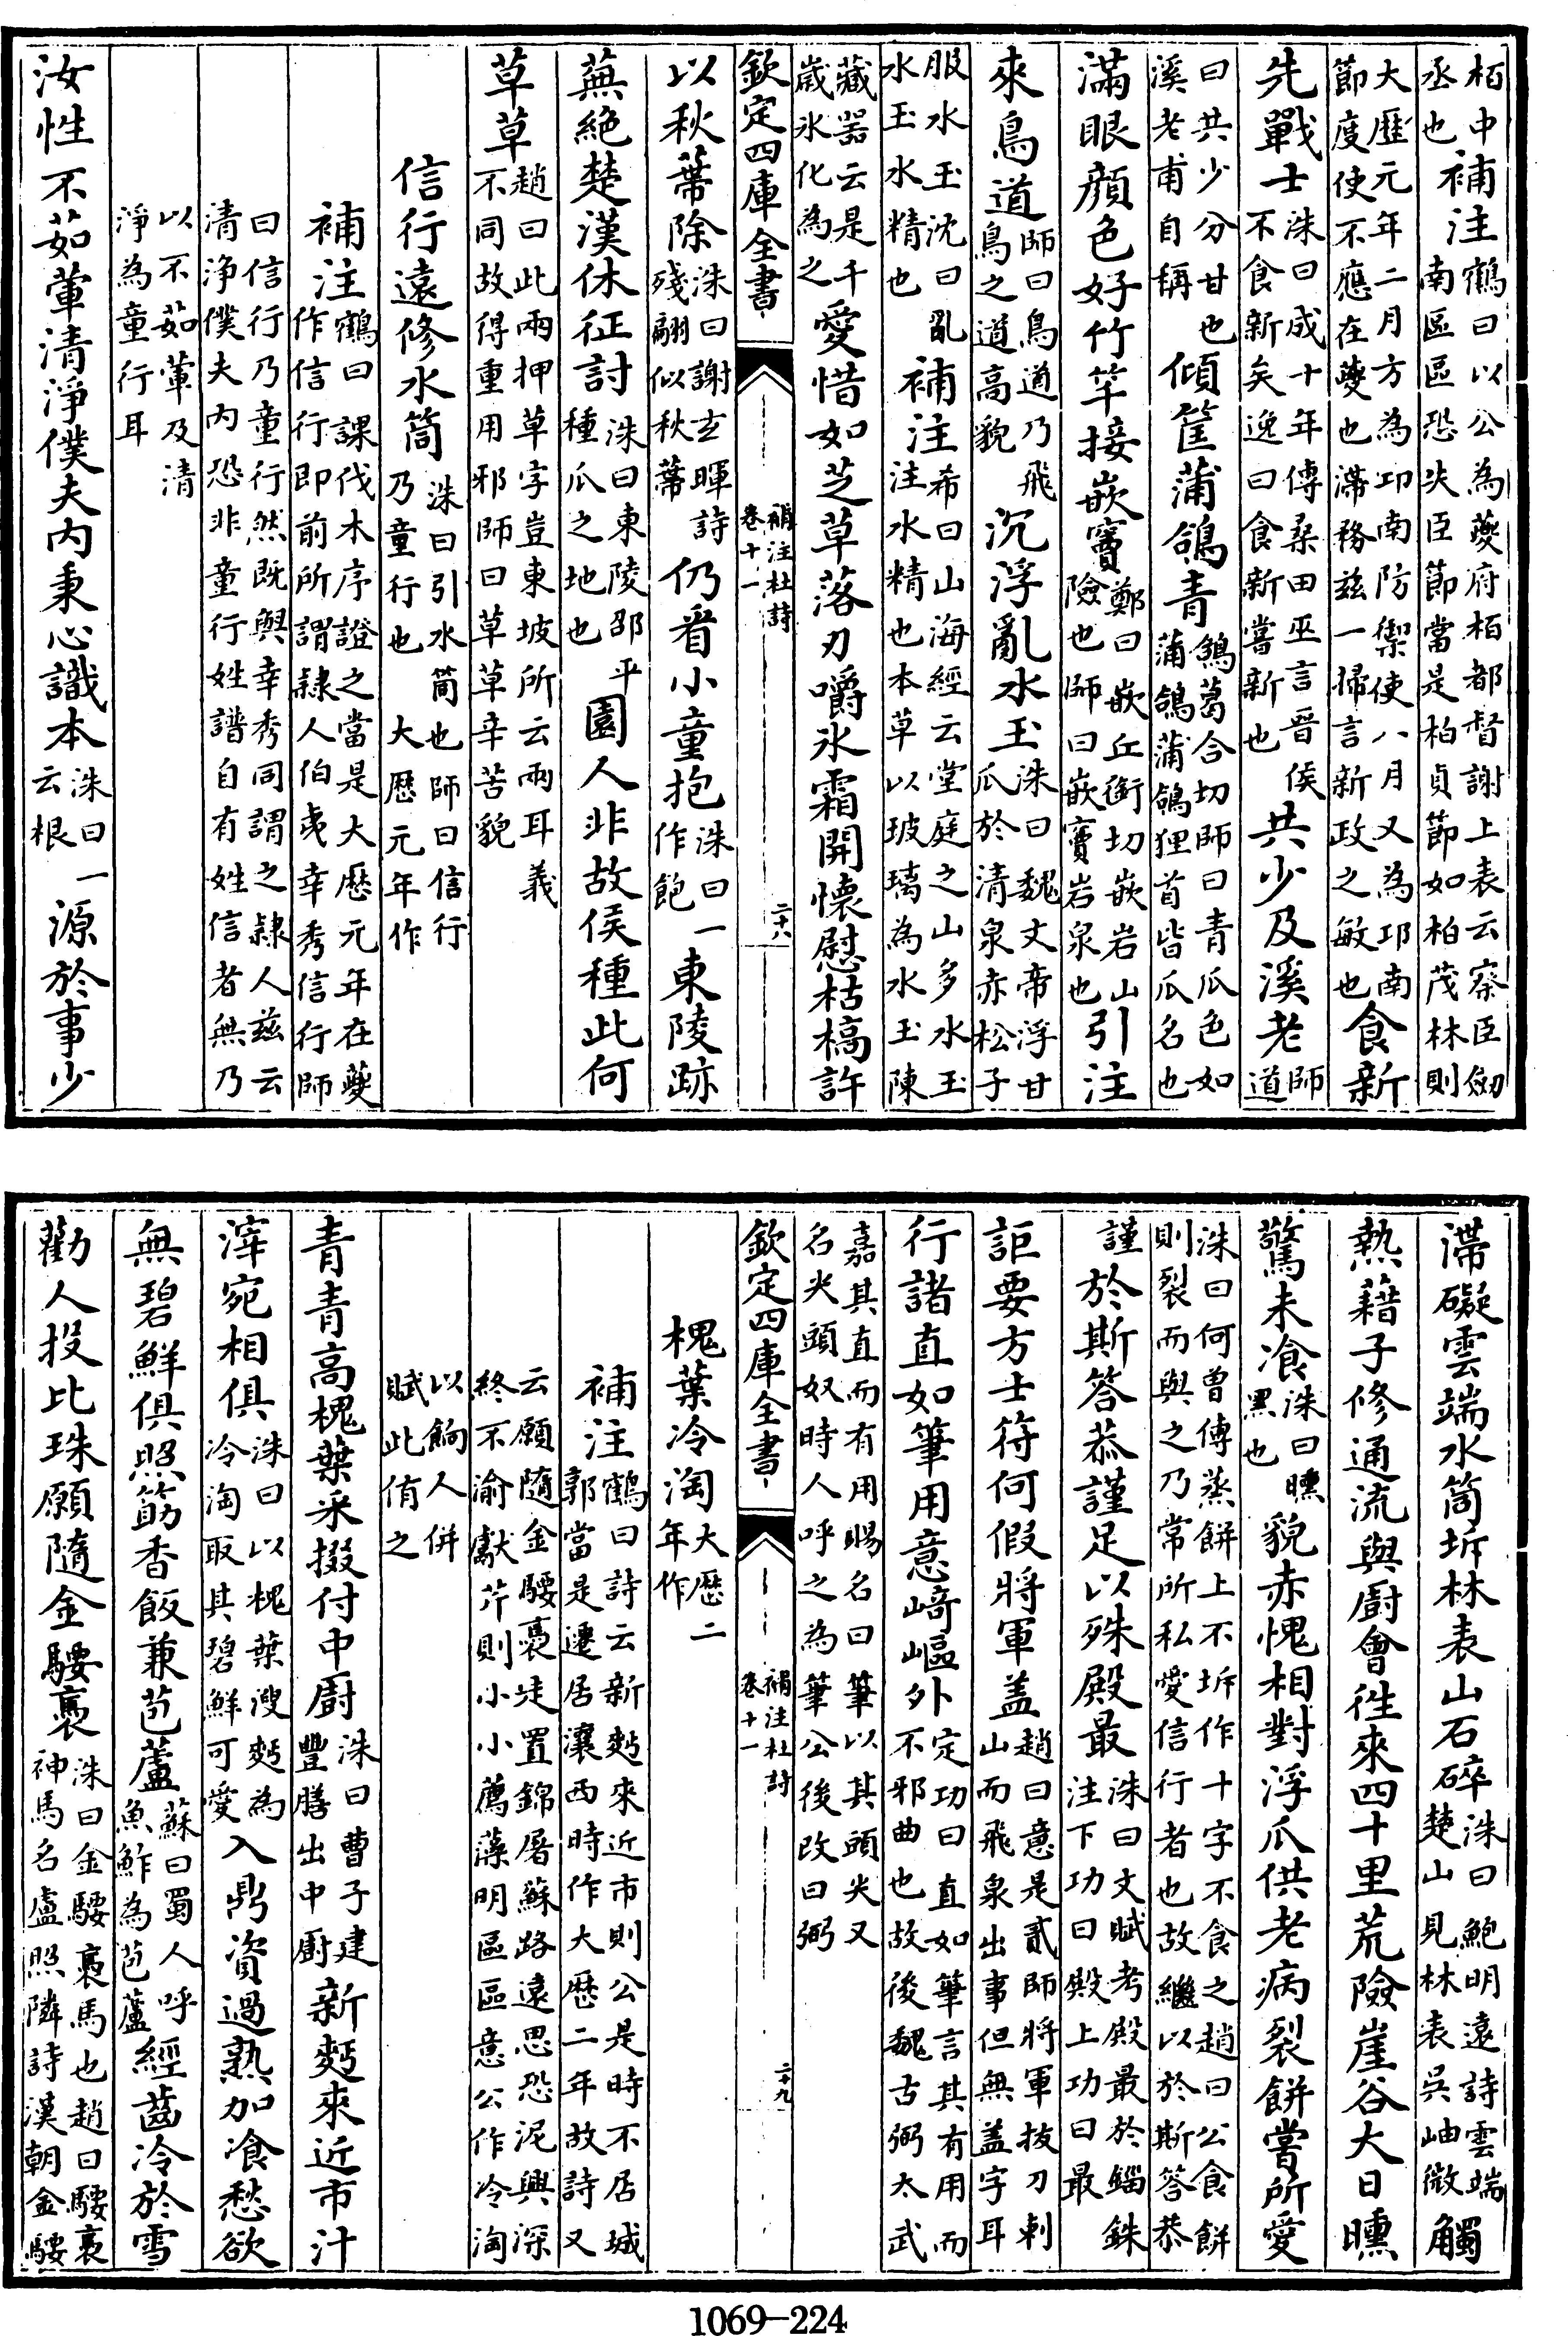 栢中補注鶴曰以公為夔府栢都督謝上表云察臣劒
丞也南區區恐失臣節當是柏貞節如柏茂林則
大厯元年二月方為卭南防禦使八月又為邛南
節度使不應在夔也滯務兹一掃言新政之敏也食新
先戰士洙曰成十年傳桑田巫言晋侯不食新矣逸曰食新嘗新也共少及溪老師道
曰共少分甘也溪老甫自稱傾筐蒲鴿青鴿葛合切師曰青瓜色如蒲鴿蒲鴿狸首皆瓜名也
滿眼顔色好竹竿接嵌竇鄭曰嵌丘銜切嵌岩山險也師曰嵌竇岩泉也引注
來鳥道師曰鳥道乃飛鳥之道高貌沉浮亂水玉洙曰魏文帝浮甘瓜於清泉赤松子
服水玉沈曰亂水玉水精也補注希曰山海經云堂庭之山多水玉注水精也本草以玻璃為水玉陳
藏噐云是千歲氷化為之愛惜如芝草落刃嚼氷霜開懷慰枯槁許
欽定四庫全書
補注杜詩
卷十一
二十八
以秋蒂除洙曰謝玄暉詩殘翮似秋蒂仍看小童抱洙曰一作飽東陵跡
蕪絶楚漢休征討洙曰東陵邵平種瓜之地也園人非故侯種此何
草草趙曰此兩押草字豈東坡所云兩耳義不同故得重用邪師曰草草辛苦貌
信行遠修水筒洙曰引水筒也師曰信行乃童行也大厯元年作
補注鶴曰課伐木序證之當是大厯元年在夔作信行即前所謂隸人伯夷幸秀信行師
曰信行乃童行然既與幸秀同謂之隸人兹云清浄僕夫内恐非童行姓譜自有姓信者無乃
以不茹葷及清淨為童行耳
汝性不茹葷清淨僕夫内秉心識本洙曰一云根源於事少
滯礙雲端水筒坼林表山石碎洙曰鮑明遠詩雲端楚山見林表吳岫微觸
熱藉子修通流與厨會徃來四十里荒險崖谷大日曛
驚未飡洙曰曛黑也貌赤愧相對浮瓜供老病裂餅嘗所愛
洙曰何曾傳蒸餅上不坼作十字不食之趙曰公食餅則裂而與之乃常所私愛信行者也故繼以於斯答恭
謹於斯答恭謹足以殊殿最洙曰文賦考殿最於錙銖注下功曰殿上功曰最
詎要方士符何假將軍盖趙曰意是貳師將軍拔刀刺山而飛泉出事但無盖字耳
行諸直如筆用意﨑嶇外定功曰直如筆言其有用而不邪曲也故後魏古弼太武
嘉其直而有用賜名曰筆以其頭尖又名尖頭奴時人呼之為筆公後改曰弼
欽定四庫全書
補注杜詩
卷十一
二十九
槐葉冷淘大厯二年作
補注鶴曰詩云新麪來近市則公是時不居城郭當是遷居瀼西時作大厯二年故詩又
云願隨金騕褭走置錦屠蘇路遠思恐泥興深終不渝獻芹則小小薦藻明區區意公作冷淘
以餉人併賦此侑之
青青高槐葉采掇付中厨洙曰曹子建豐膳出中厨新麪來近市汁
滓宛相俱洙曰以槐葉溲麪為冷淘取其碧鮮可愛入鼎資過熟加飡愁欲
無碧鮮俱照筯香飯兼苞蘆蘇曰蜀人呼魚鮓為苞蘆經齒冷於雪
勸人投比珠願隨金騕褭洙曰金騕褭馬也趙曰騕褭神馬名盧照隣詩漢朝金騕
1069-224